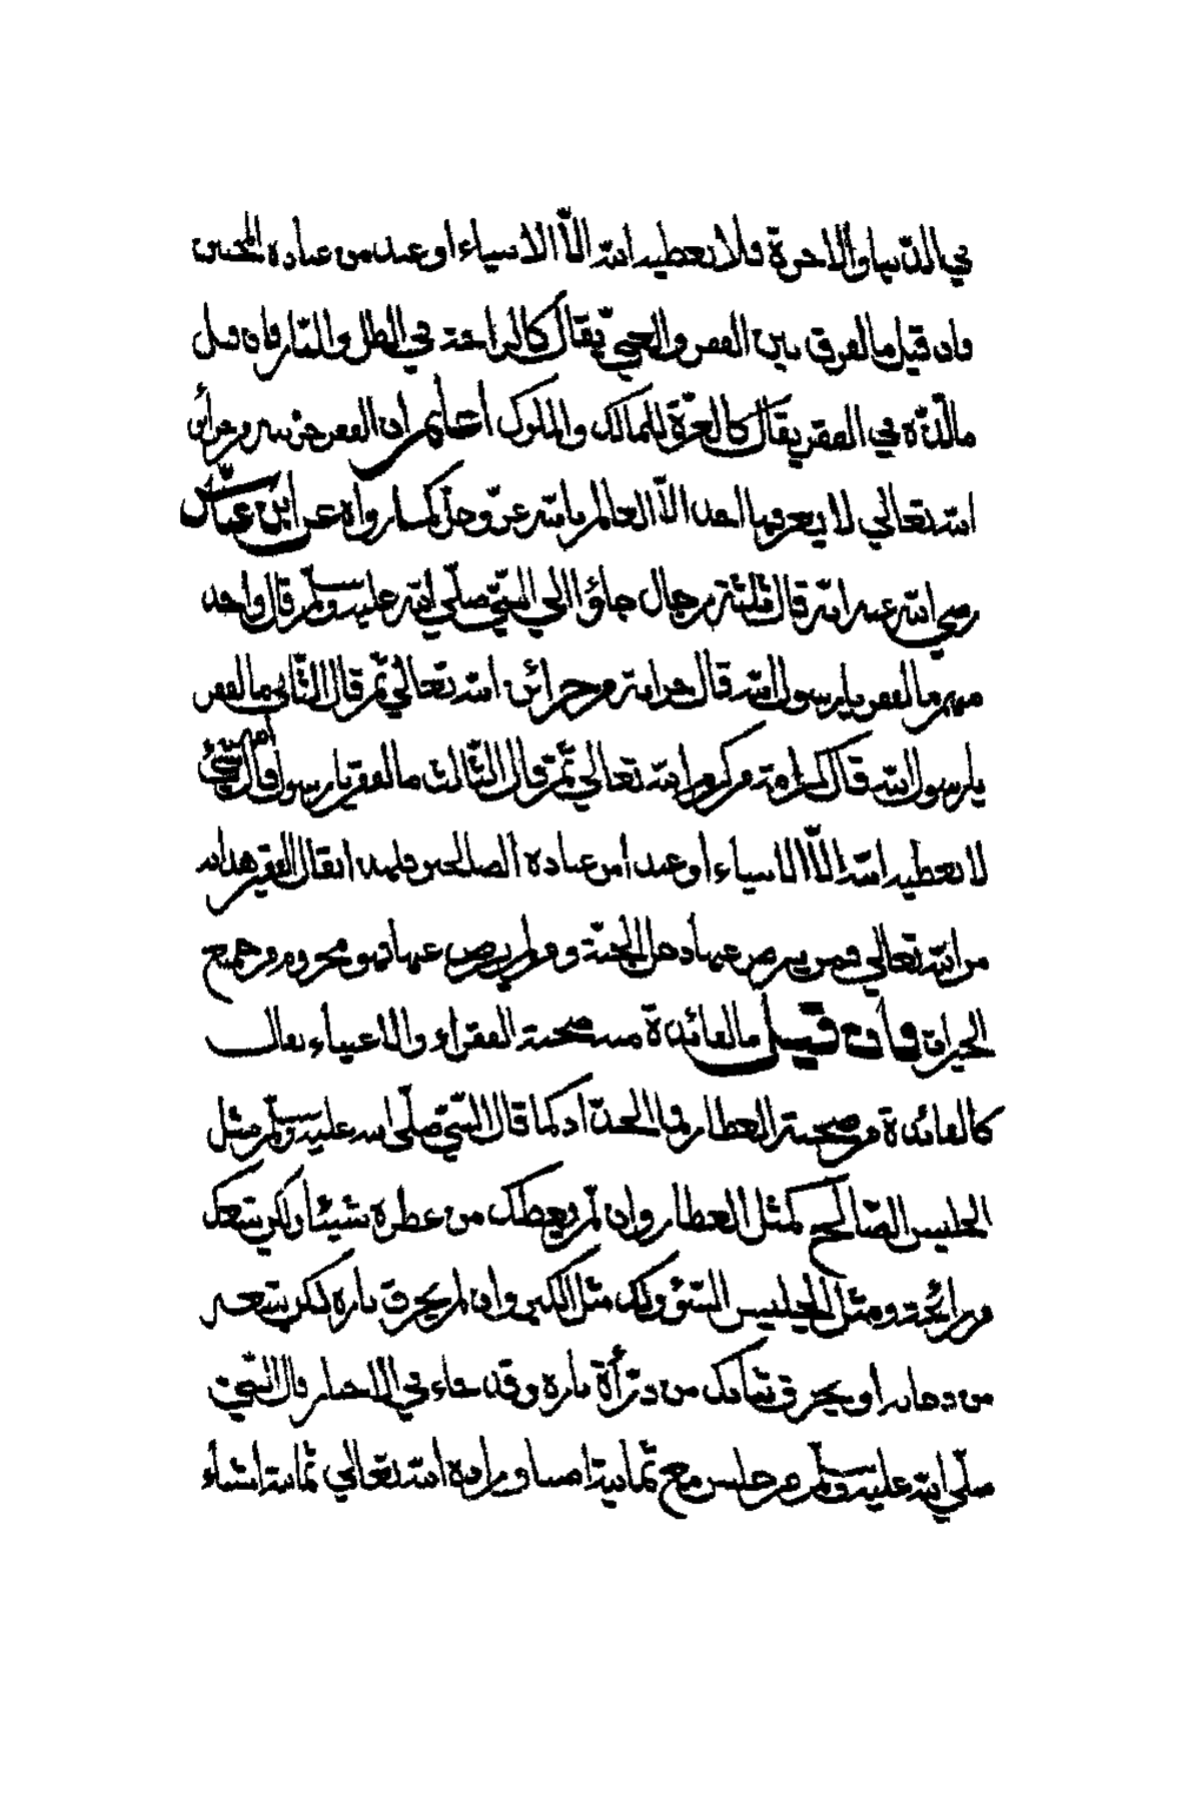 في الدنيا والاخرة فلا يعطيه الله الّا الانبياء او عبد من عباده المحبين
فان قيل ما الفرق بين الفقر والغنيّ يقال كالراحة في الظل والنّار فان قيل
ما لذّة في الفقر يقال كالعزّة للمالك والملوك اعلم ان الفقر خزينة من خزائن
الله تعالي لا يعرفها احد الّا العالم بالله عزّ وجلّ كما رواه عن ابن عبّاس
رضي الله عنه انه قال ثلثة رجال جاؤا الي النبيّ صلّي الله عليه وسلّم قال واحد
منهم ما الفقر يا رسول الله قال خزانة من خزائن الله تعالي ثمّ قال الثّاني ما الفقر
يا رسول الله قال كرامة من كرم الله تعالي ثمّ قال الثّالث ما الفقر يا رسول الله قال شيئ
لا يعطيه الله الّا الانبياء او عبدا من عباده الصالحين فلهذا يقال الفقر هداية
من الله تعالي فمن يعرض عنها دخل الجنّة ومن لم يعرض عنها فهو محروم من جميع
الخيرات فان قيل ما الفائدة من صحبة الفقراء والاغنياء يقال
كالفائدة من صحبة العطار والحدّاد كما قال النّبيّ صلّي الله عليه وسلّم مثل
الجليس الصّالح كمثل العطار وان لّم يعطك من عطره شيئا ولكن يتعبك
من رائحته ومثل الجليس السّوء كمثل الكير وان لم يحرق ناره لكن يتعبك
من دخانه او يحرق ثيابك من درأة ناره وقد جاء في الاخبار قال النّبيّ
صلّي الله عليه وسلّم من جلس مع ثمانية اصناف زاده الله تعالي ثمانية اشياء